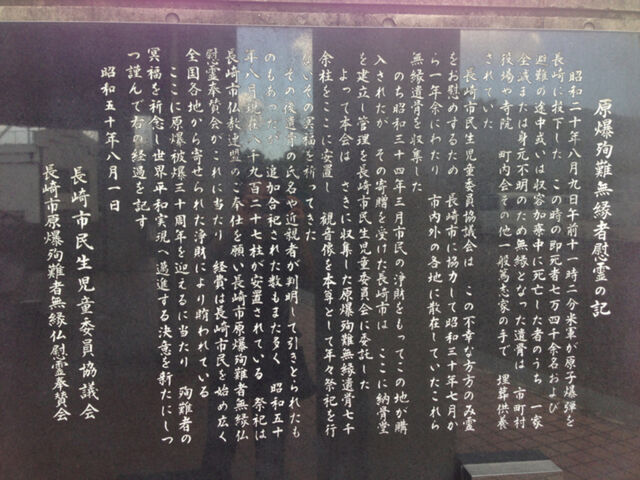 原爆殉難無縁者慰霊の記
昭和二十年八月九日午前十一時二分米軍が原子爆弾を
長崎に投下した この時の即死者七万四千余名および
避難の途中或いは収容加療中に死亡した者のうち 一家
全滅または身元不明のため無縁となった遺骨は 市町村
役場や寺院 町内会その他一般篤志家の手で 埋葬供養
されてた
長崎市民生児童委員協議会は この不幸な方方のみ霊
をお慰めするため 長崎市に協力して昭和三十年七月か
ら一年余にわたり 市内外の各地に散在していたこれら
無縁遺骨を収集した
のち昭和三十四年三月市民の浄財をもってこの地が購
入されたが その寄贈を受けた長崎市は ここに納骨堂
を建立し管理を長崎市民生児童委員会に委託した
よって本会は さきに収集した原爆殉難無縁遺骨七千
余柱をここに安置し 観音像を本尊として年々祭祀を行
ないその冥福を祈ってきた
その後遺骨の氏名や近親者が判明して引きとられたも
のもあったが 追加合祀された数もまた多く 昭和五十
年八月現在八千九百二十七柱が安置されている 祭祀は
長崎市仏教連盟のご奉仕を願い長崎市原爆殉難者無縁仏
慰霊奉賛会がこれに当たり 経費は長崎市民を始め広く
全国各地から寄せられた浄財により賄われている
ここに原爆被爆三十周年を迎えるに当たり 殉難者の
冥福を祈念し世界平和実現へ邁進する決意を新たにしつ
つ謹んで右の経過を記す
昭和五十年八月一日
長崎市民生児童委員協議会
長崎市原爆殉難者無縁仏慰霊奉賛会